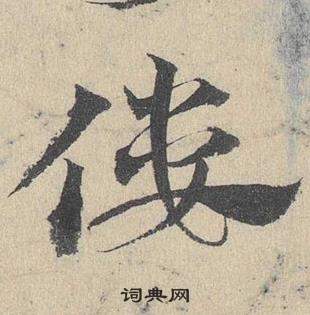 偻
词典网